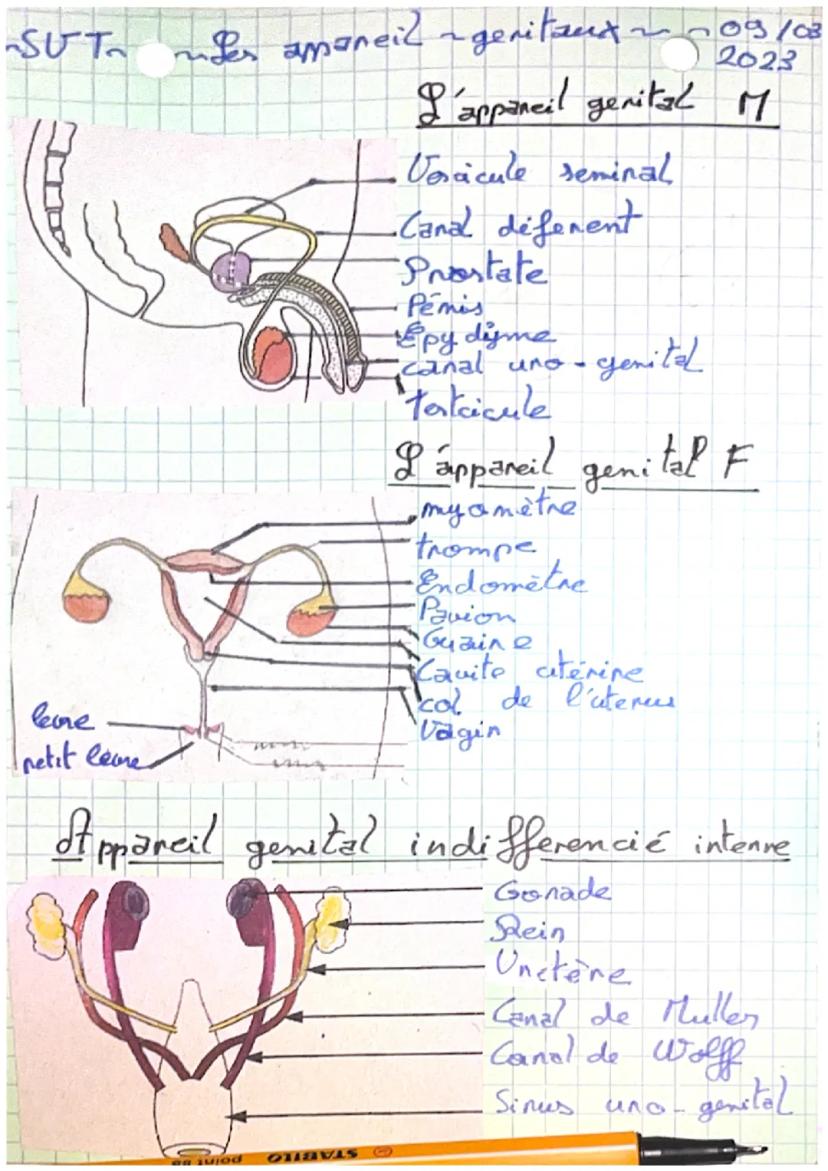 ~SVT~ ~Les appareil ~genitaux~ ~09/03
2023
L'appareil genital M
Vesicule seminal
Canal déferent
Prostate
Pénis
Épydidyme
canal uro-genital
Testcicule
L'appareil genital F
myomètre
trompe
Endomètre
Pavion
Ovaire
Cavite utérine
col de l'uterus
Vagin
levre
petit levre
Appareil genital indifferencié interne
Gonade
Rein
Uretère
Canal de Muller
Canal de Wolff
Sinus uro-genital
STABILO
point 88